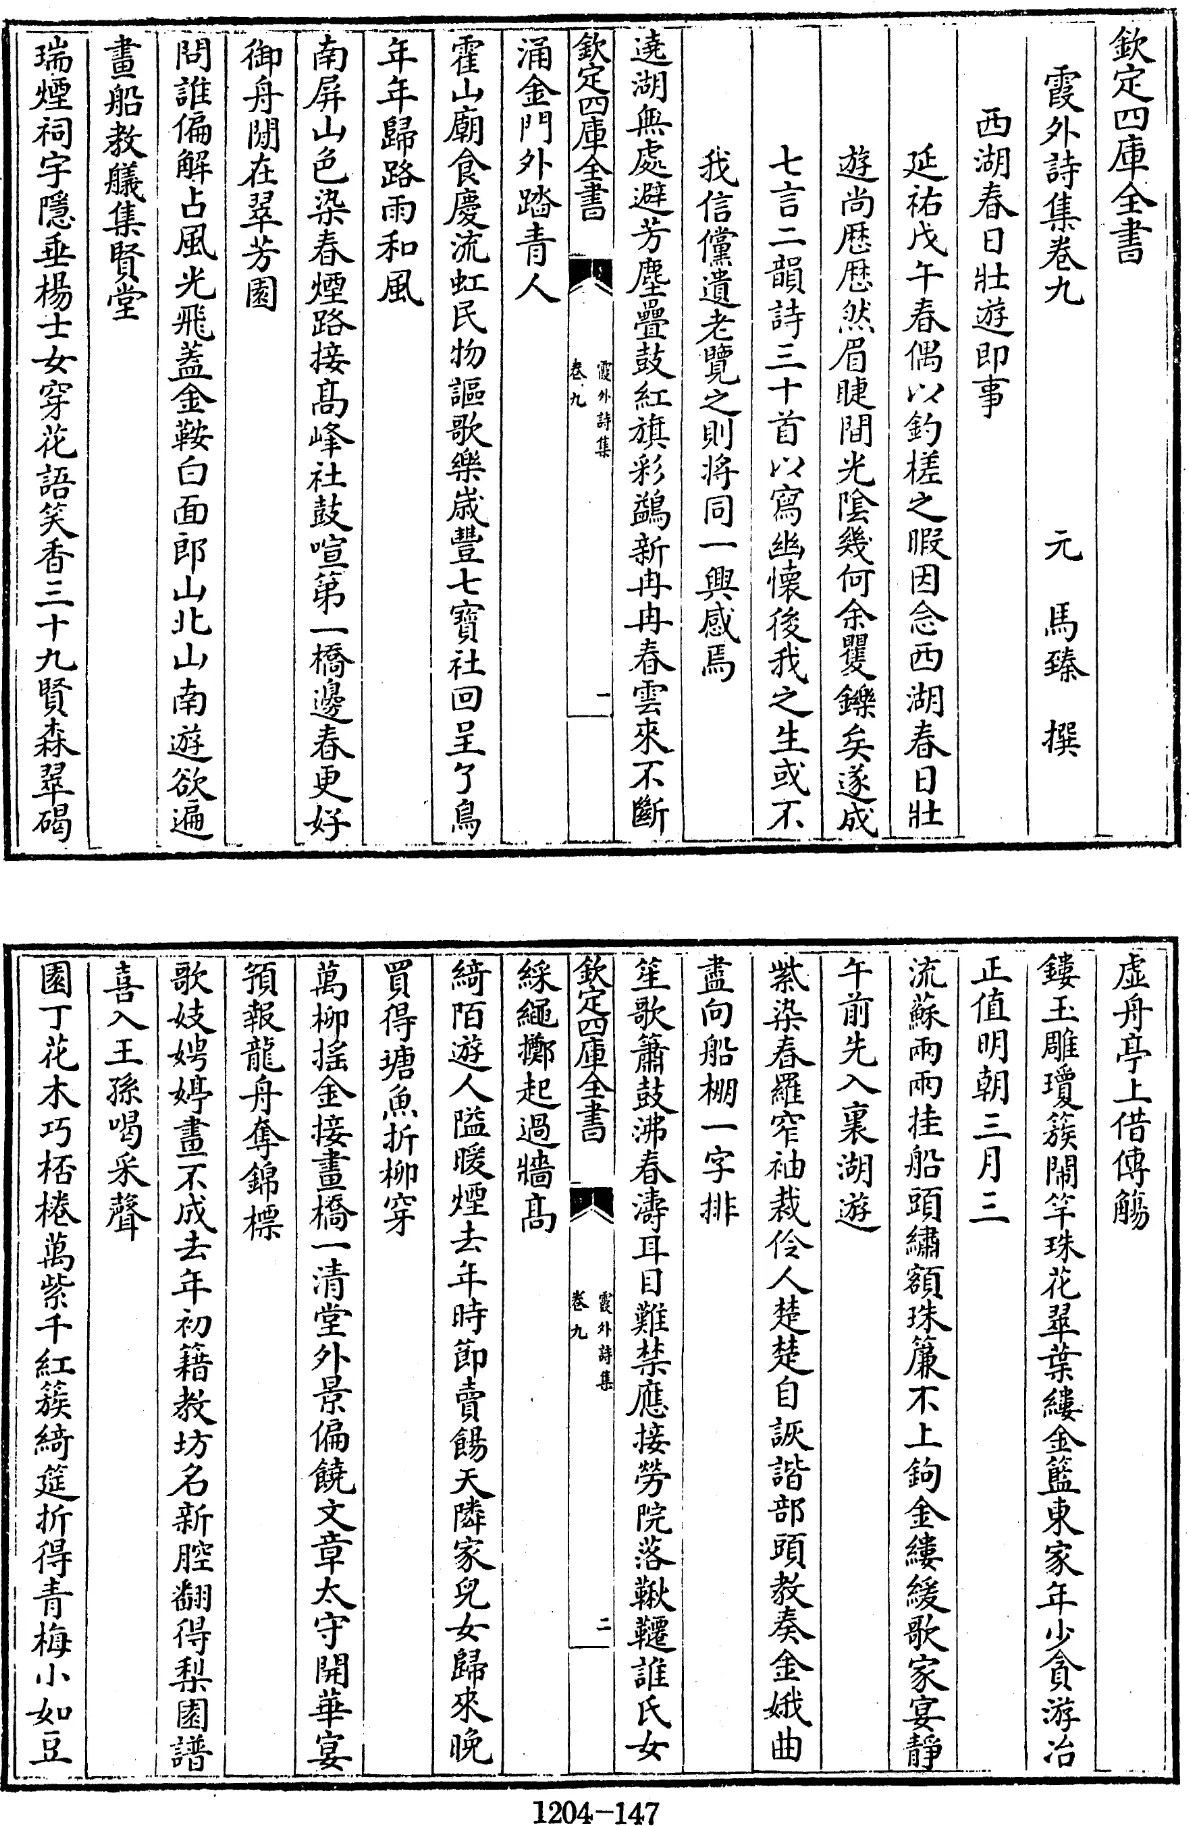 欽定四庫全書
霞外詩集卷九
元 馬臻 撰
西湖春日壯遊即事
延祐戊午春偶以釣槎之暇因念西湖春日壯
遊尚歴歴然眉睫間光陰幾何余矍鑠矣遂成
七言二韻詩三十首以寫幽懷後我之生或不
我信儻遺老覽之則將同一興感焉
遶湖無處避芳塵疊鼓紅旗彩鷁新冉冉春雲來不斷
欽定四庫全書
霞外詩集
卷九
一
涌金門外踏青人
霍山廟食慶流虹民物謳歌樂歳豐七寶社回呈了鳥
年年歸路雨和風
南屏山色染春煙路接髙峰社鼓喧第一橋邊春更好
御舟閒在翠芳園
問誰偏解占風光飛葢金鞍白面郎山北山南遊欲遍
畫船教艤集賢堂
瑞煙祠宇隱垂楊士女穿花語笑香三十九賢森翠碣
虛舟亭上借傳觴
鏤玉雕瓊簇閙竿珠花翠葉縷金籃東家年少貪游冶
正值明朝三月三
流蘇兩兩挂船頭繡額珠簾不上鉤金縷緩歌家宴靜
午前先入裏湖遊
紫染春羅窄袖裁伶人楚楚自詼諧部頭教奏金娥曲
盡向船棚一字排
笙歌簫鼓沸春濤耳目難禁應接勞院落鞦韆誰氏女
欽定四庫全書
霞外詩集
卷九
二
綵繩擲起過牆髙
綺陌遊人隘暖煙去年時節賣餳天隣家兒女歸來晚
買得塘魚折柳穿
萬柳搖金接畫橋一清堂外景偏饒文章太守開華宴
預報龍舟奪錦標
歌妓娉婷畫不成去年初籍教坊名新腔翻得梨園譜
喜入王孫喝采聲
園丁花木巧桮棬萬紫千紅簇綺筵折得青梅小如豆
1204-147